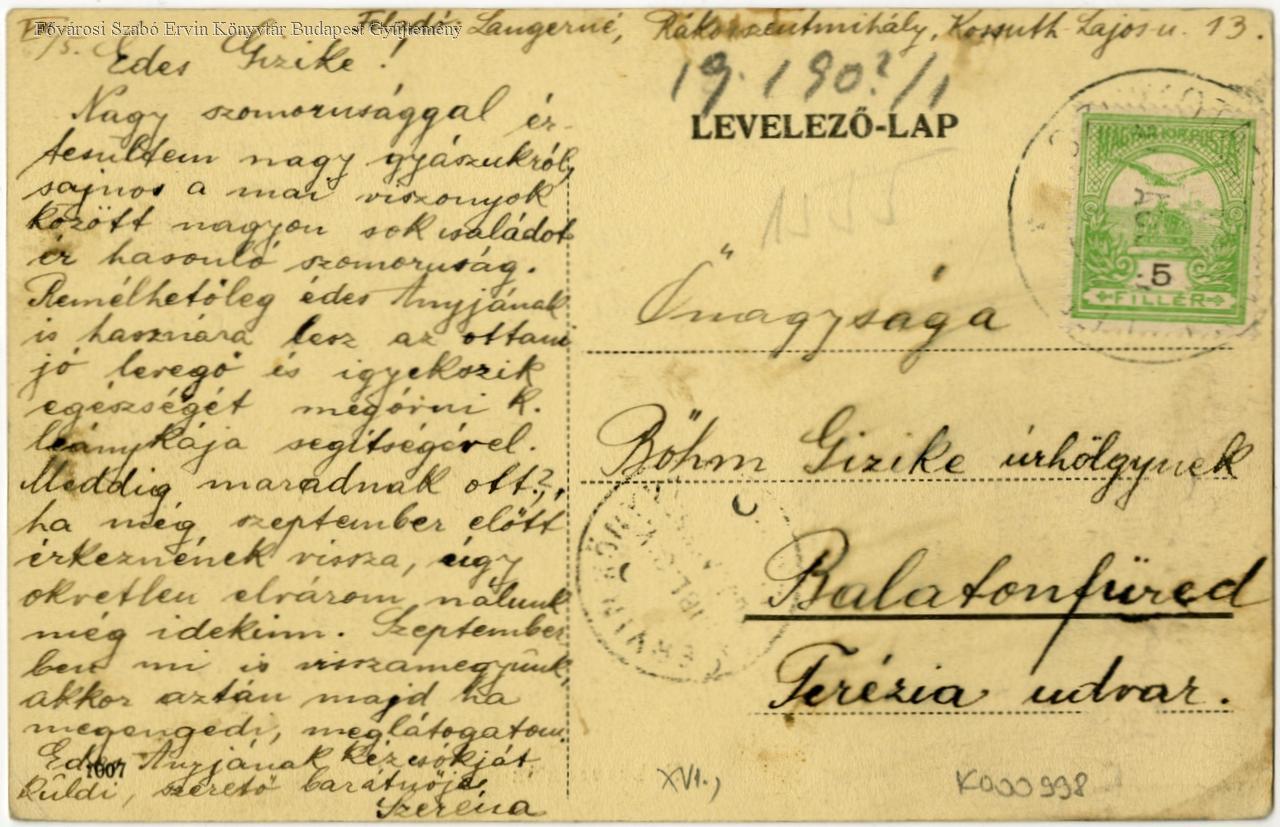 Fővárosi Szabó Ervin Könyvtár Budapest Gyűjtemény
Langerné, Rákosszentmihály, Kossuth Lajos u. 13.
Édes Gizike!
Nagy szomorusággal ér-
tesültem nagy gyászukról,
sajnos a mai viszonyok
között nagyon sok családot
ér hasonló szomoruság.
Remélhetőleg édes Anyjának
is hasznára lesz az ottani
jó levegő és igyekszik
egészségét megóvni k.
leánykája segítségével.
Meddig maradnak ott?,
ha még szeptember előtt
érkeznének vissza, úgy
okvetlen elvárom nálunk
még idekinn. Szeptember
ben mi is visszamegyünk,
akkor aztán majd ha
megengedi, meglátogatom.
Édes Anyjának kézcsókját
küldi, szerető barátnője
Szeréna
1607
19.190?/1
LEVELEZŐ-LAP
1555
MAGYAR KIR. POSTA
5
FILLÉR
Őnagysága
Böhm Gizike úrhölgynek
Balatonfüred
Terézia udvar.
XVI.,
K000998